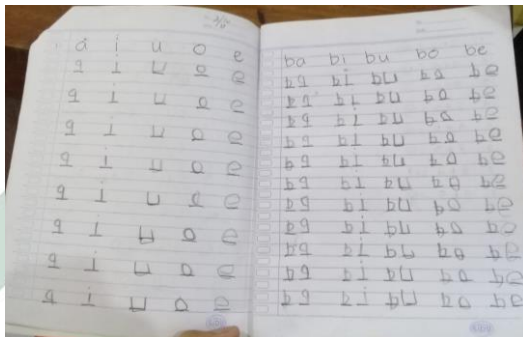 a i u o e
a i u o e
a i u o e
a i u o e
a i u o e
a i u o e
a i u o e
a i u o e
a i u o e
ba bi bu bo be
ba bi bu bo be
ba bi bu bo be
ba bi bu bo be
ba bi bu bo be
ba bi bu bo be
ba bi bu bo be
ba bi bu bo be
ba bi bu bo be
ba bi bu bo be
ba bi bu bo be
ba bi bu bo be